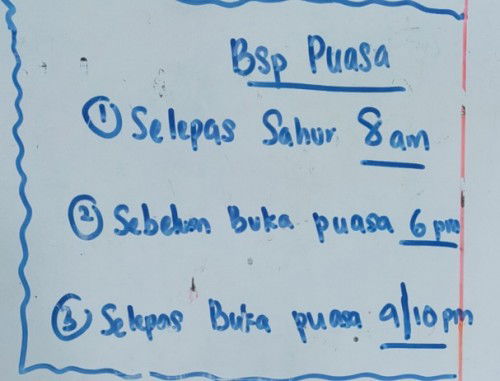 Bsp Puasa
① Selepas Sahur 8 am
② Sebelum Buka puasa 6 pm
③ Selepas Buka puasa 9/10 pm